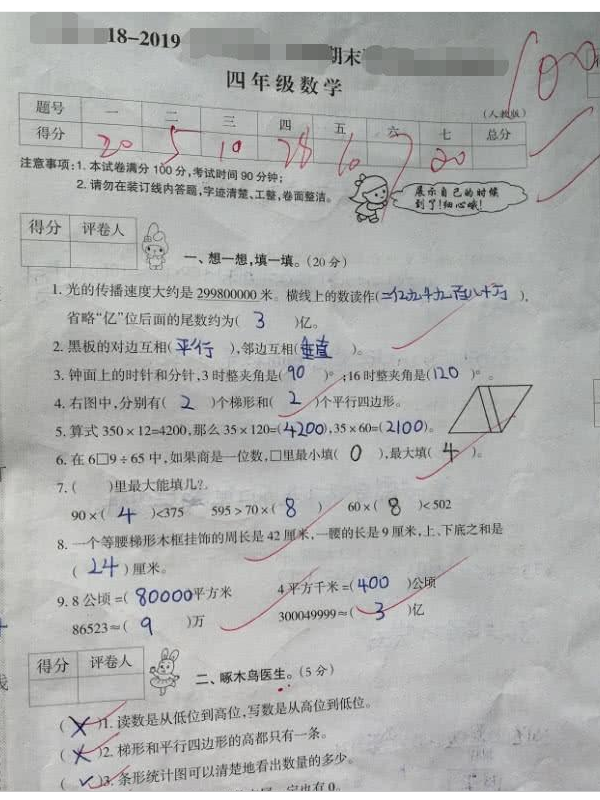 18-2019 期末
四年级数学
100
(人教版)
题号 一 二 三 四 五 六 七 总分
得分 20 5 10 28 10 7 20
注意事项:1. 本试卷满分 100 分,考试时间 90 分钟;
2. 请勿在装订线内答题,字迹清楚、工整,卷面整洁。
展示自己的时候
到了!细心哦!
得分 评卷人
一、想一想,填一填。(20 分)
1. 光的传播速度大约是 299800000 米。横线上的数读作(二亿九千九百八十万),
省略“亿”位后面的尾数约为( 3 )亿。
2. 黑板的对边互相( 平行 ),邻边互相(垂直 )。
3. 钟面上的时针和分针,3 时整夹角是( 90 )°;16 时整夹角是(120 )°。
4. 右图中,分别有( 2 )个梯形和( 2 )个平行四边形。
5. 算式 350×12=4200,那么 35×120=(4200),35×60=(2100)。
6. 在 6□9÷65 中,如果商是一位数,□里最小填( 0 ),最大填( 4 )。
7. ( )里最大能填几?
90×( 4 )<375 595>70×( 8 ) 60×( 8 )<502
8. 一个等腰梯形木框挂饰的周长是 42 厘米,一腰的长是 9 厘米,上、下底之和是
( 24 )厘米。
9. 8 公顷=( 80000 )平方米 4 平方千米=(400 )公顷
86523≈( 9 )万 300049999≈( 3 )亿
得分 评卷人
二、啄木鸟医生。(5 分)
( ✗ )1. 读数是从低位到高位,写数是从高位到低位。
( ✗ )2. 梯形和平行四边形的高都只有一条。
( ✓ )3. 条形统计图可以清楚地看出数量的多少。
一定也有 0。